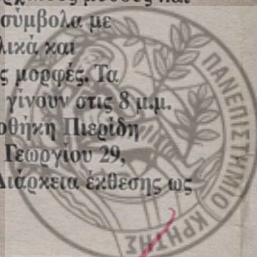 σύμβολα με
και
ς μορφές. Τα
γίνουν στις 8 μ.μ.
Πιερίδη
Γεωργίου 29,
Διάρκεια έκθεσης ως
ΠΑΝΕΠΙΣΤΗΜΙΟ ΚΡΗΤΗΣ